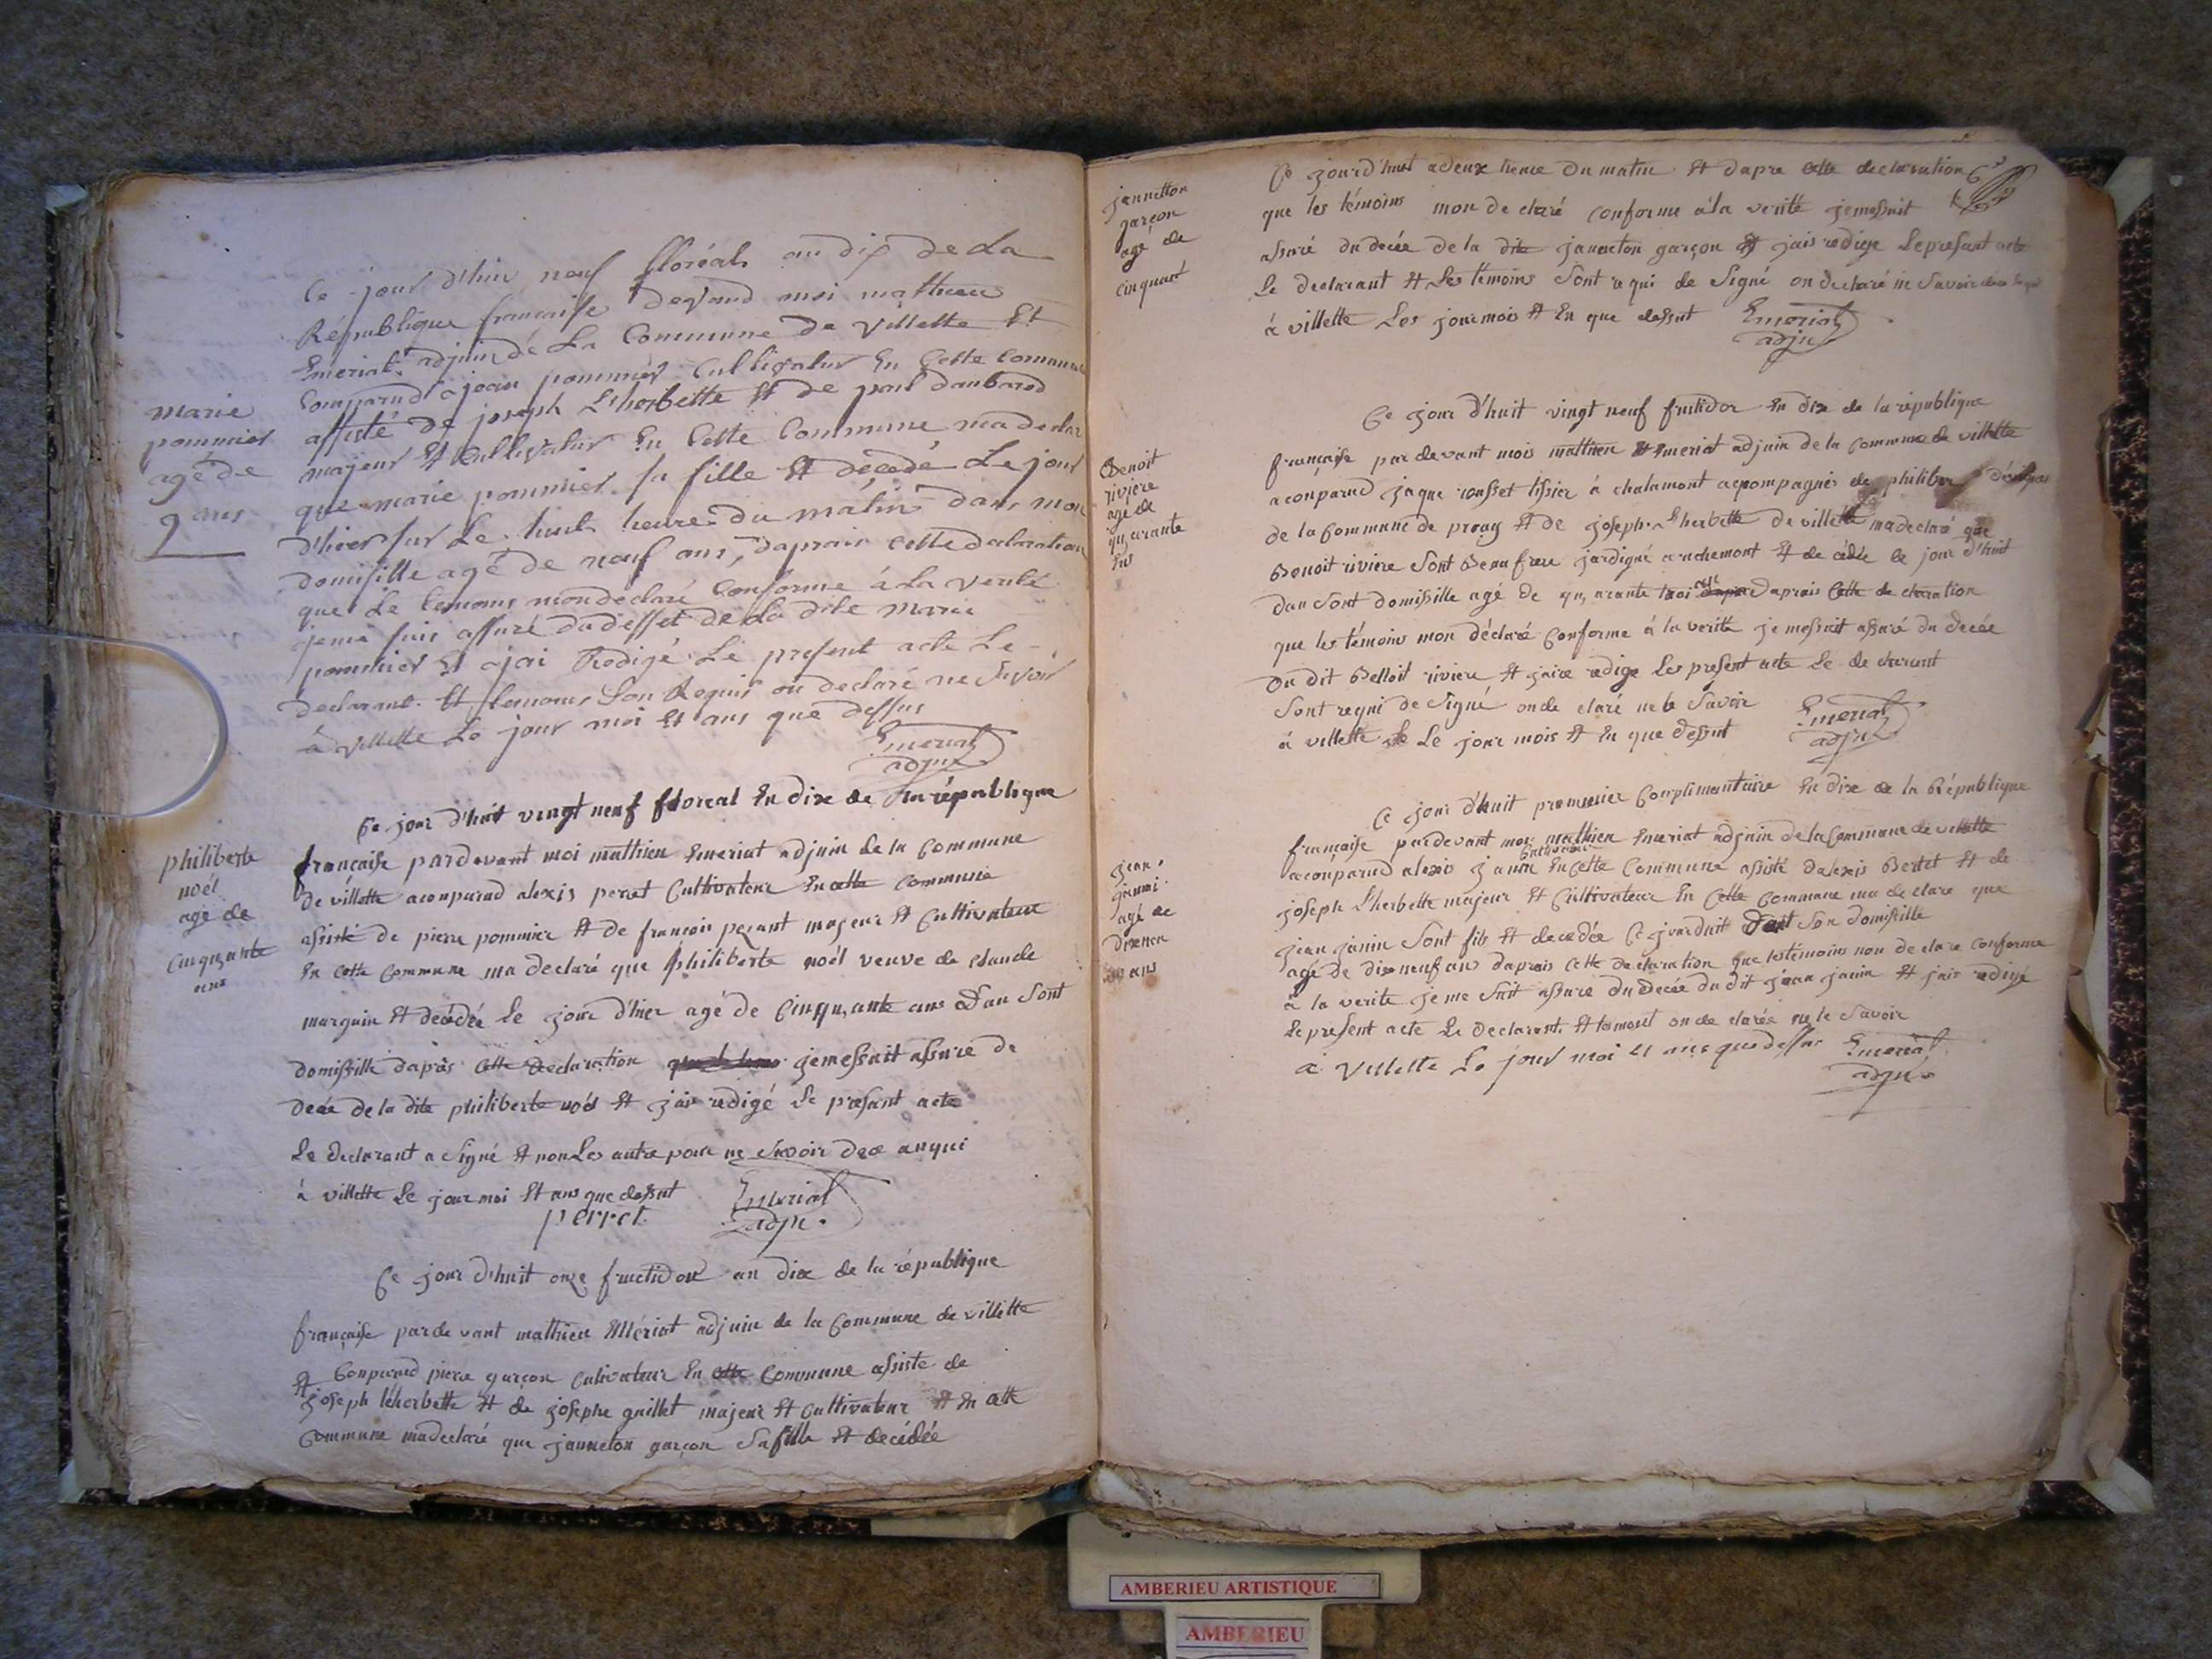 marie
pommier
agé de
9 ans
Ce jour d'hui neuf floréal an dix de La
République francaise devand moi mathieu
Emeriat adjuin de La Commune de villette Et
Comparud a jean pommier Cultivatur En Cette Commune
assisté de joseph Lhorbette Et de paul
majeur Et Cultivatur En Cette Commune ma declar
que marie pommier sa fille Et décédé Le jour
d'hier sur Le huit heure du matin dans mon
domisille agé de neuf ans, daprais Cette dalaration
que Le temoins mon declaré Conforme à La verité
jeme suis assuré du desset de La dite Marie
pommier Et ajai Redigé Le present acte Le
declarant Et temoins Son Requis on declaré ne Savoir
à villette Le jour moi Et ans que dessus
Emeriat
adju
philiberte
noél
agé de
cinquante
ans
Ce jour d'huit vingt neuf floreal En dix de la république
française pardevant moi mathieu Emeriat adjuin de la Commune
de villette aconparud alexis perret Cultivateur En cette commune
assisté de pierre pommier Et de francois perant majeur Et Cultivateur
En cette commune ma declaré que philiberte noél veuve de claude
marguin Et décédée Le jour d'hier agé de Cinquante ans Dan Sont
domissille daprès cette declaration jemessuit assure de
decée de la dite philiberte noél Et jais redigé Le present acte
Le declarant a Signé Et non Les autre pour ne Savoir dece anqui
à villette Le jour moi Et ans que dessut
Emeriat
perret
adju
Ce jour d'huit onze fructidor an dix de la république
française parde vant mathieu Emériat adjuin de la Commune de villette
Et Conparud pierre garçon Cutivateur En cette Commune assiste de
joseph lherbette Et de josephe guillet majeur Et Cultivateur Et En cette
Commune madeclaré que jauneton garçon Safille Et decédée
jannetton
garçon
agé de
cinquant
Ce jourd'huit adeux heure du matin Et dapre cette declaration
que les témoins mon de claré conforme à la verité jemessuit
assuré du decée de la dite janneton garçon Et jais redige Lepresant acte
Le declarant Et Les témoins Sont requi de Signé on declaré ne Savoir
à villette Les jour mois Et En que dessut
Emeriat
adju
Benoit
riviere
agé de
quarante
Ens
Ce jour d'huit vingt neuf frutidor En dix de la république
française par devant mois mathieu Emeriat adjuin de la Commune de villette
aconparud jaque rousset tissier à chalamont acompagnés de philiber
de la Commune de prouy Et de joseph Lherbette de villette madeclaré que
Benoit riviere Sont Beau frere jardigné Et de cédée le jour d'huit
dan Sont domissille agé de quarante troi ans daprais Cette de claration
que les témoins mon déclaré Conforme à la verité je messuit assuré du decée
du dit Bettoit riviere Et jaice redige Les present acte Le de clarant
Sont requi de Signé on de claré ne le Savoir
à villette Le jour mois Et En que dessut
Emeriat
adju
jean
jannin
agé de
dixneu
ans
Ce jour d'huit premmier Complimantaire En dix de la République
française pardevant moi mathieu Emeriat adjuin de la Commune de villette
aconparud alexis janin Cultivateur En cette Commune assisté dalexis Bertet Et de
joseph Lherbette majeur Et Cultivateur En Cette Commune ma de clare que
jean janin Sont fils Et decedée Ce jourduit Dant Son domissille
agé de dix neuf ans daprais Cette declaration que lestemoins non de clare conforme
à la verite je me Suit assure du decée du dit jean janin Et jais redigé
Le present acte Le declarant Et temoint on de clarée ne le Savoir
a villette Le jour moi Et ans que dessus
Emeriat
adju
AMBERIEU ARTISTIQUE
AMBERIEU